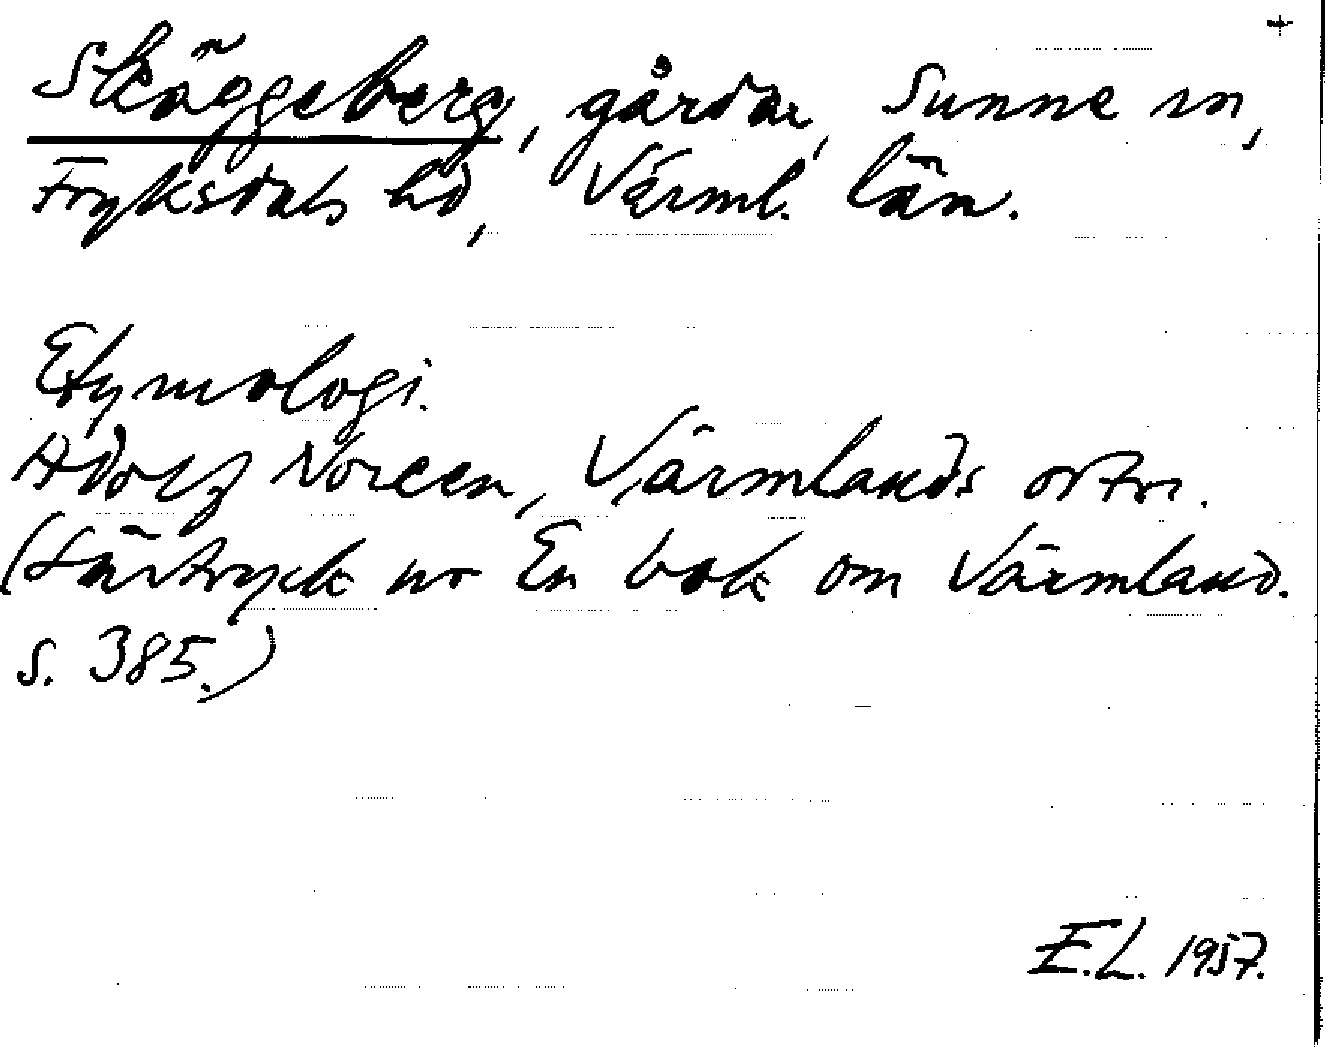 +
Skäggeberg, gårdar, Sunne sn,
Fryksdals hd, Värml. län.
Etymologi.
Adolf Noreen, Värmlands ortn.
(Särtryck ur En bok om Värmland.
s. 385.)
E.L. 1957.